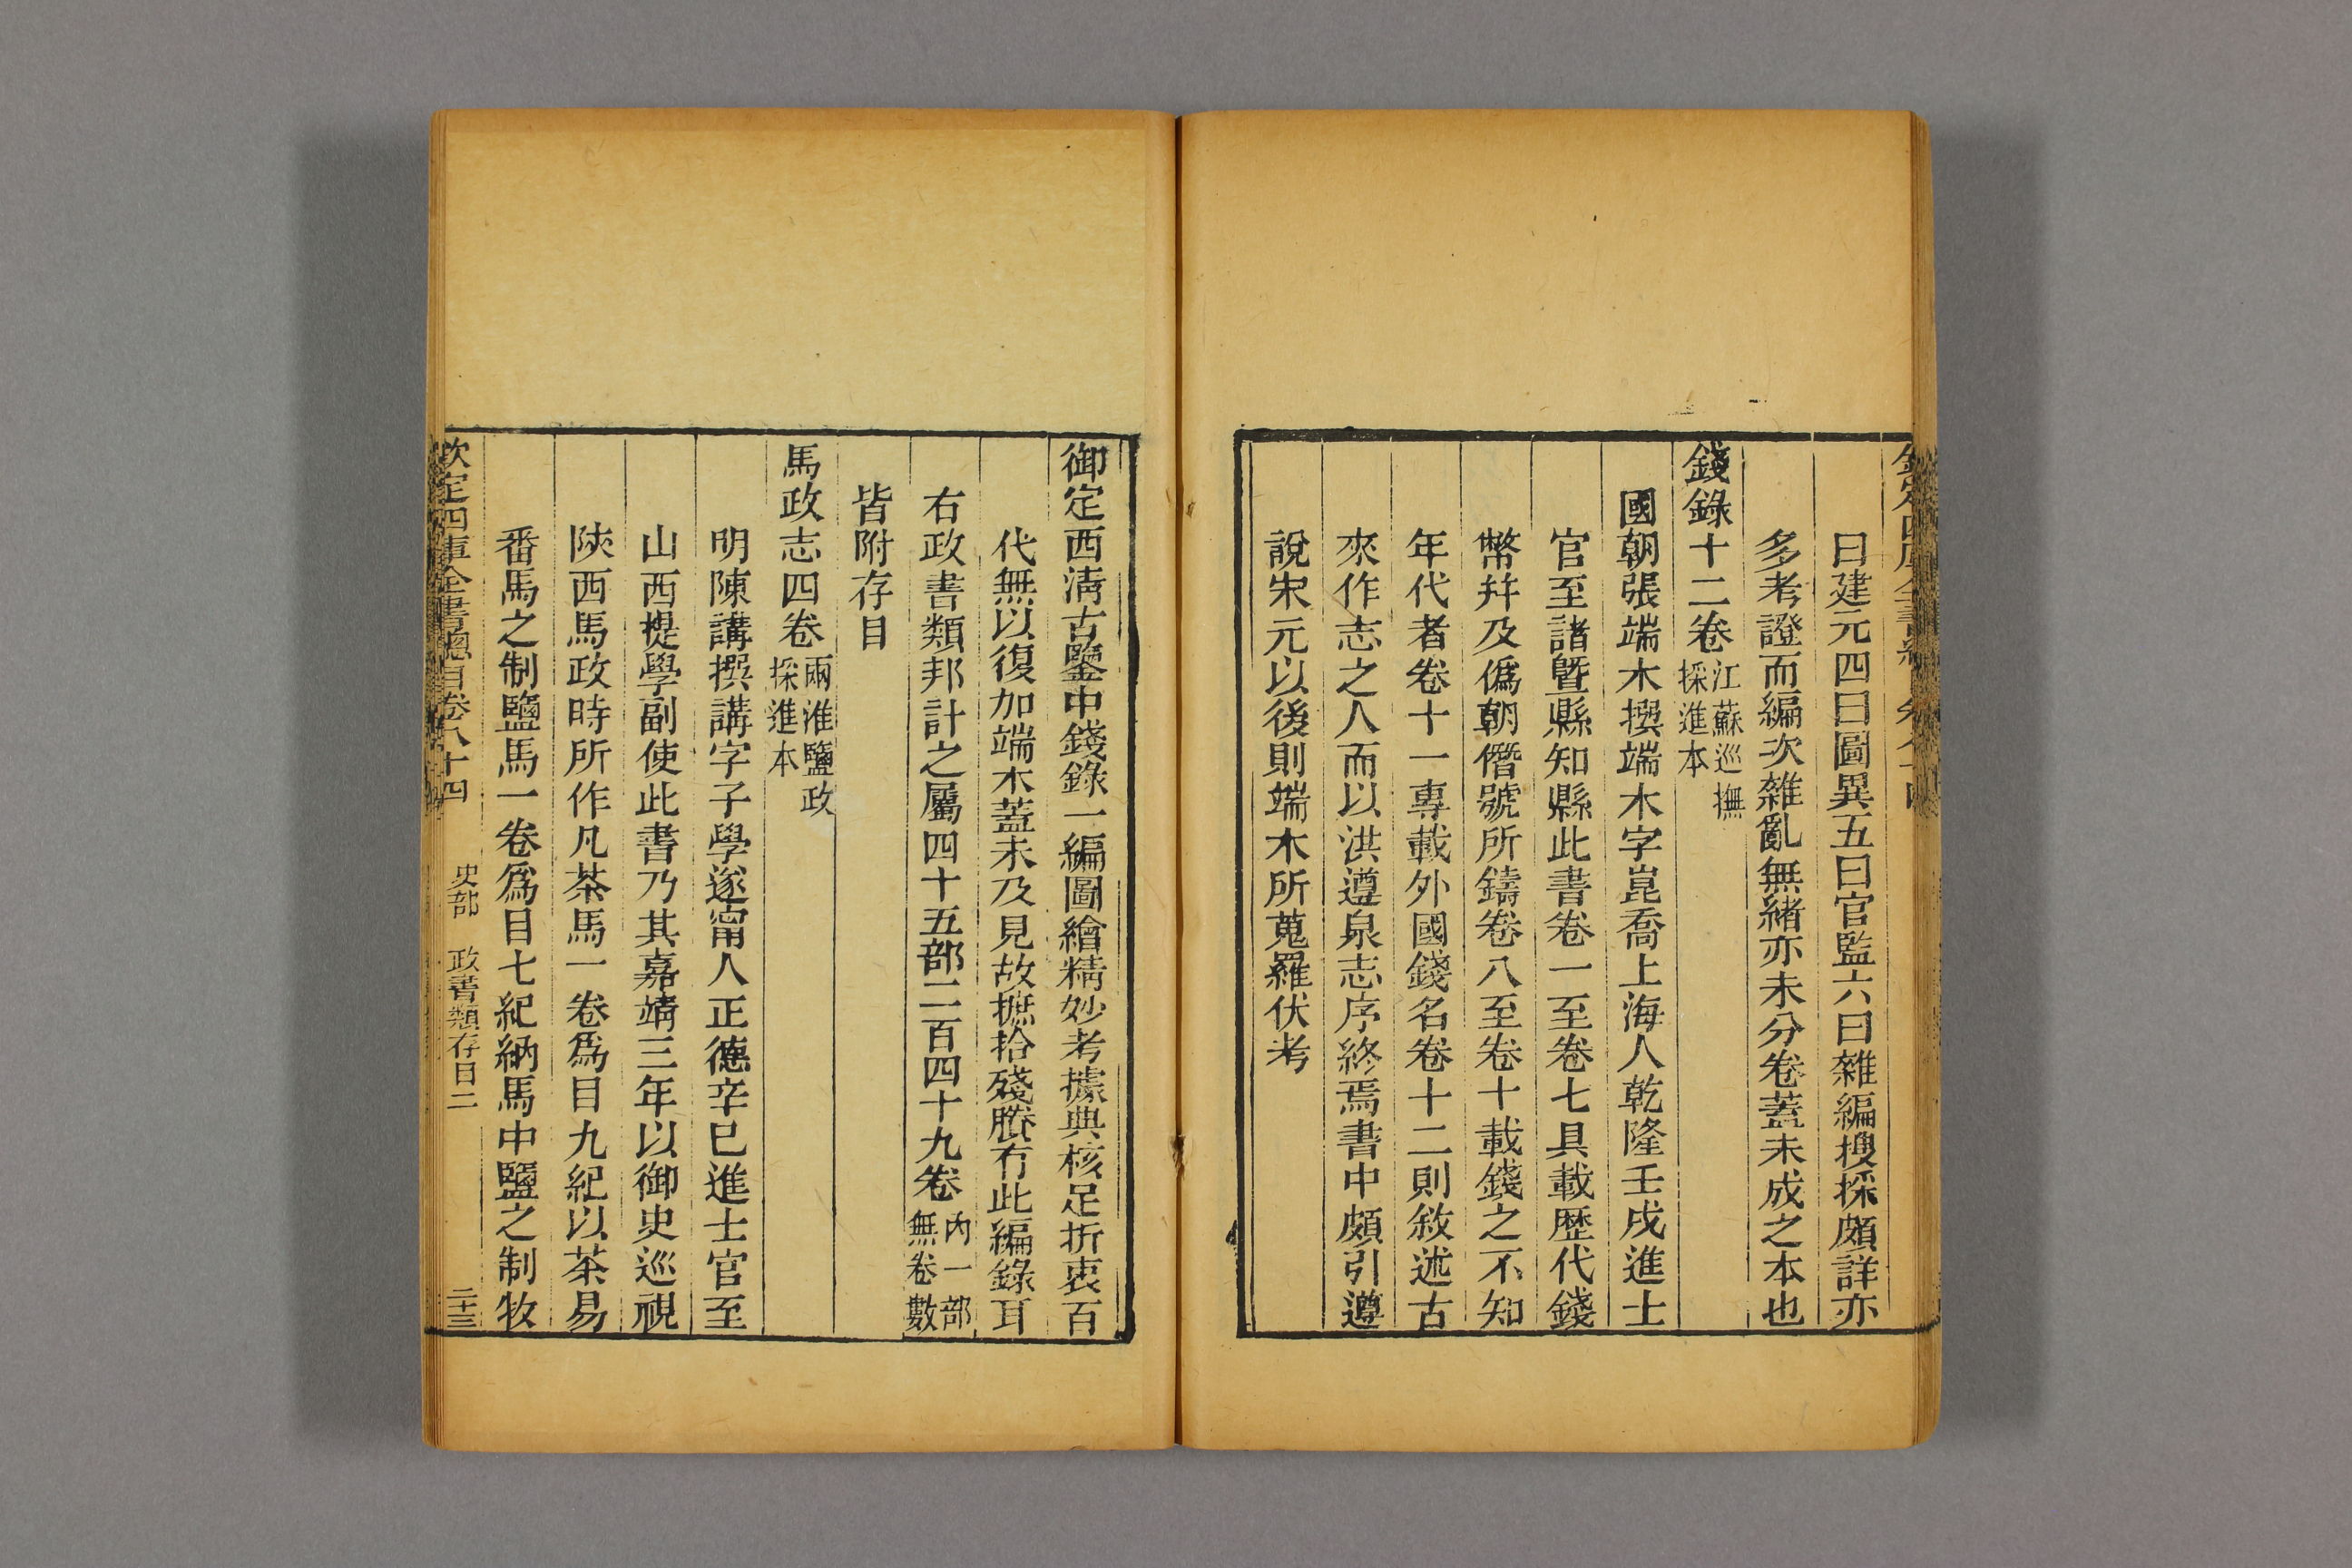 曰建元四曰圖異五曰官監六曰雜編搜採頗詳亦
多考證而編次雜亂無緒亦未分卷蓋未成之本也
錢錄十二卷
江蘇巡撫
採進本
國朝張端木撰端木字崑喬上海人乾隆壬戌進士
官至諸暨縣知縣此書卷一至卷七具載歷代錢
幣幷及僞朝僭號所鑄卷八至卷十載錢之不知
年代者卷十一專載外國錢名卷十二則敘述古
來作志之人而以洪遵泉志序終焉書中頗引遵
說宋元以後則端木所蒐羅伏考
御定西淸古鑒中錢錄一編圖繪精妙考據典核足折衷百
代無以復加端木蓋未及見故摭拾殘賸有此編錄耳
右政書類邦計之屬四十五部二百四十九卷
內一部
無卷數
皆附存目
馬政志四卷
兩淮鹽政
採進本
明陳講撰講字子學遂甯人正德辛巳進士官至
山西提學副使此書乃其嘉靖三年以御史巡視
陝西馬政時所作凡茶馬一卷爲目九紀以茶易
番馬之制鹽馬一卷爲目七紀納馬中鹽之制牧
欽定四庫全書總目卷八十四
史部 政書類存目二
二十三